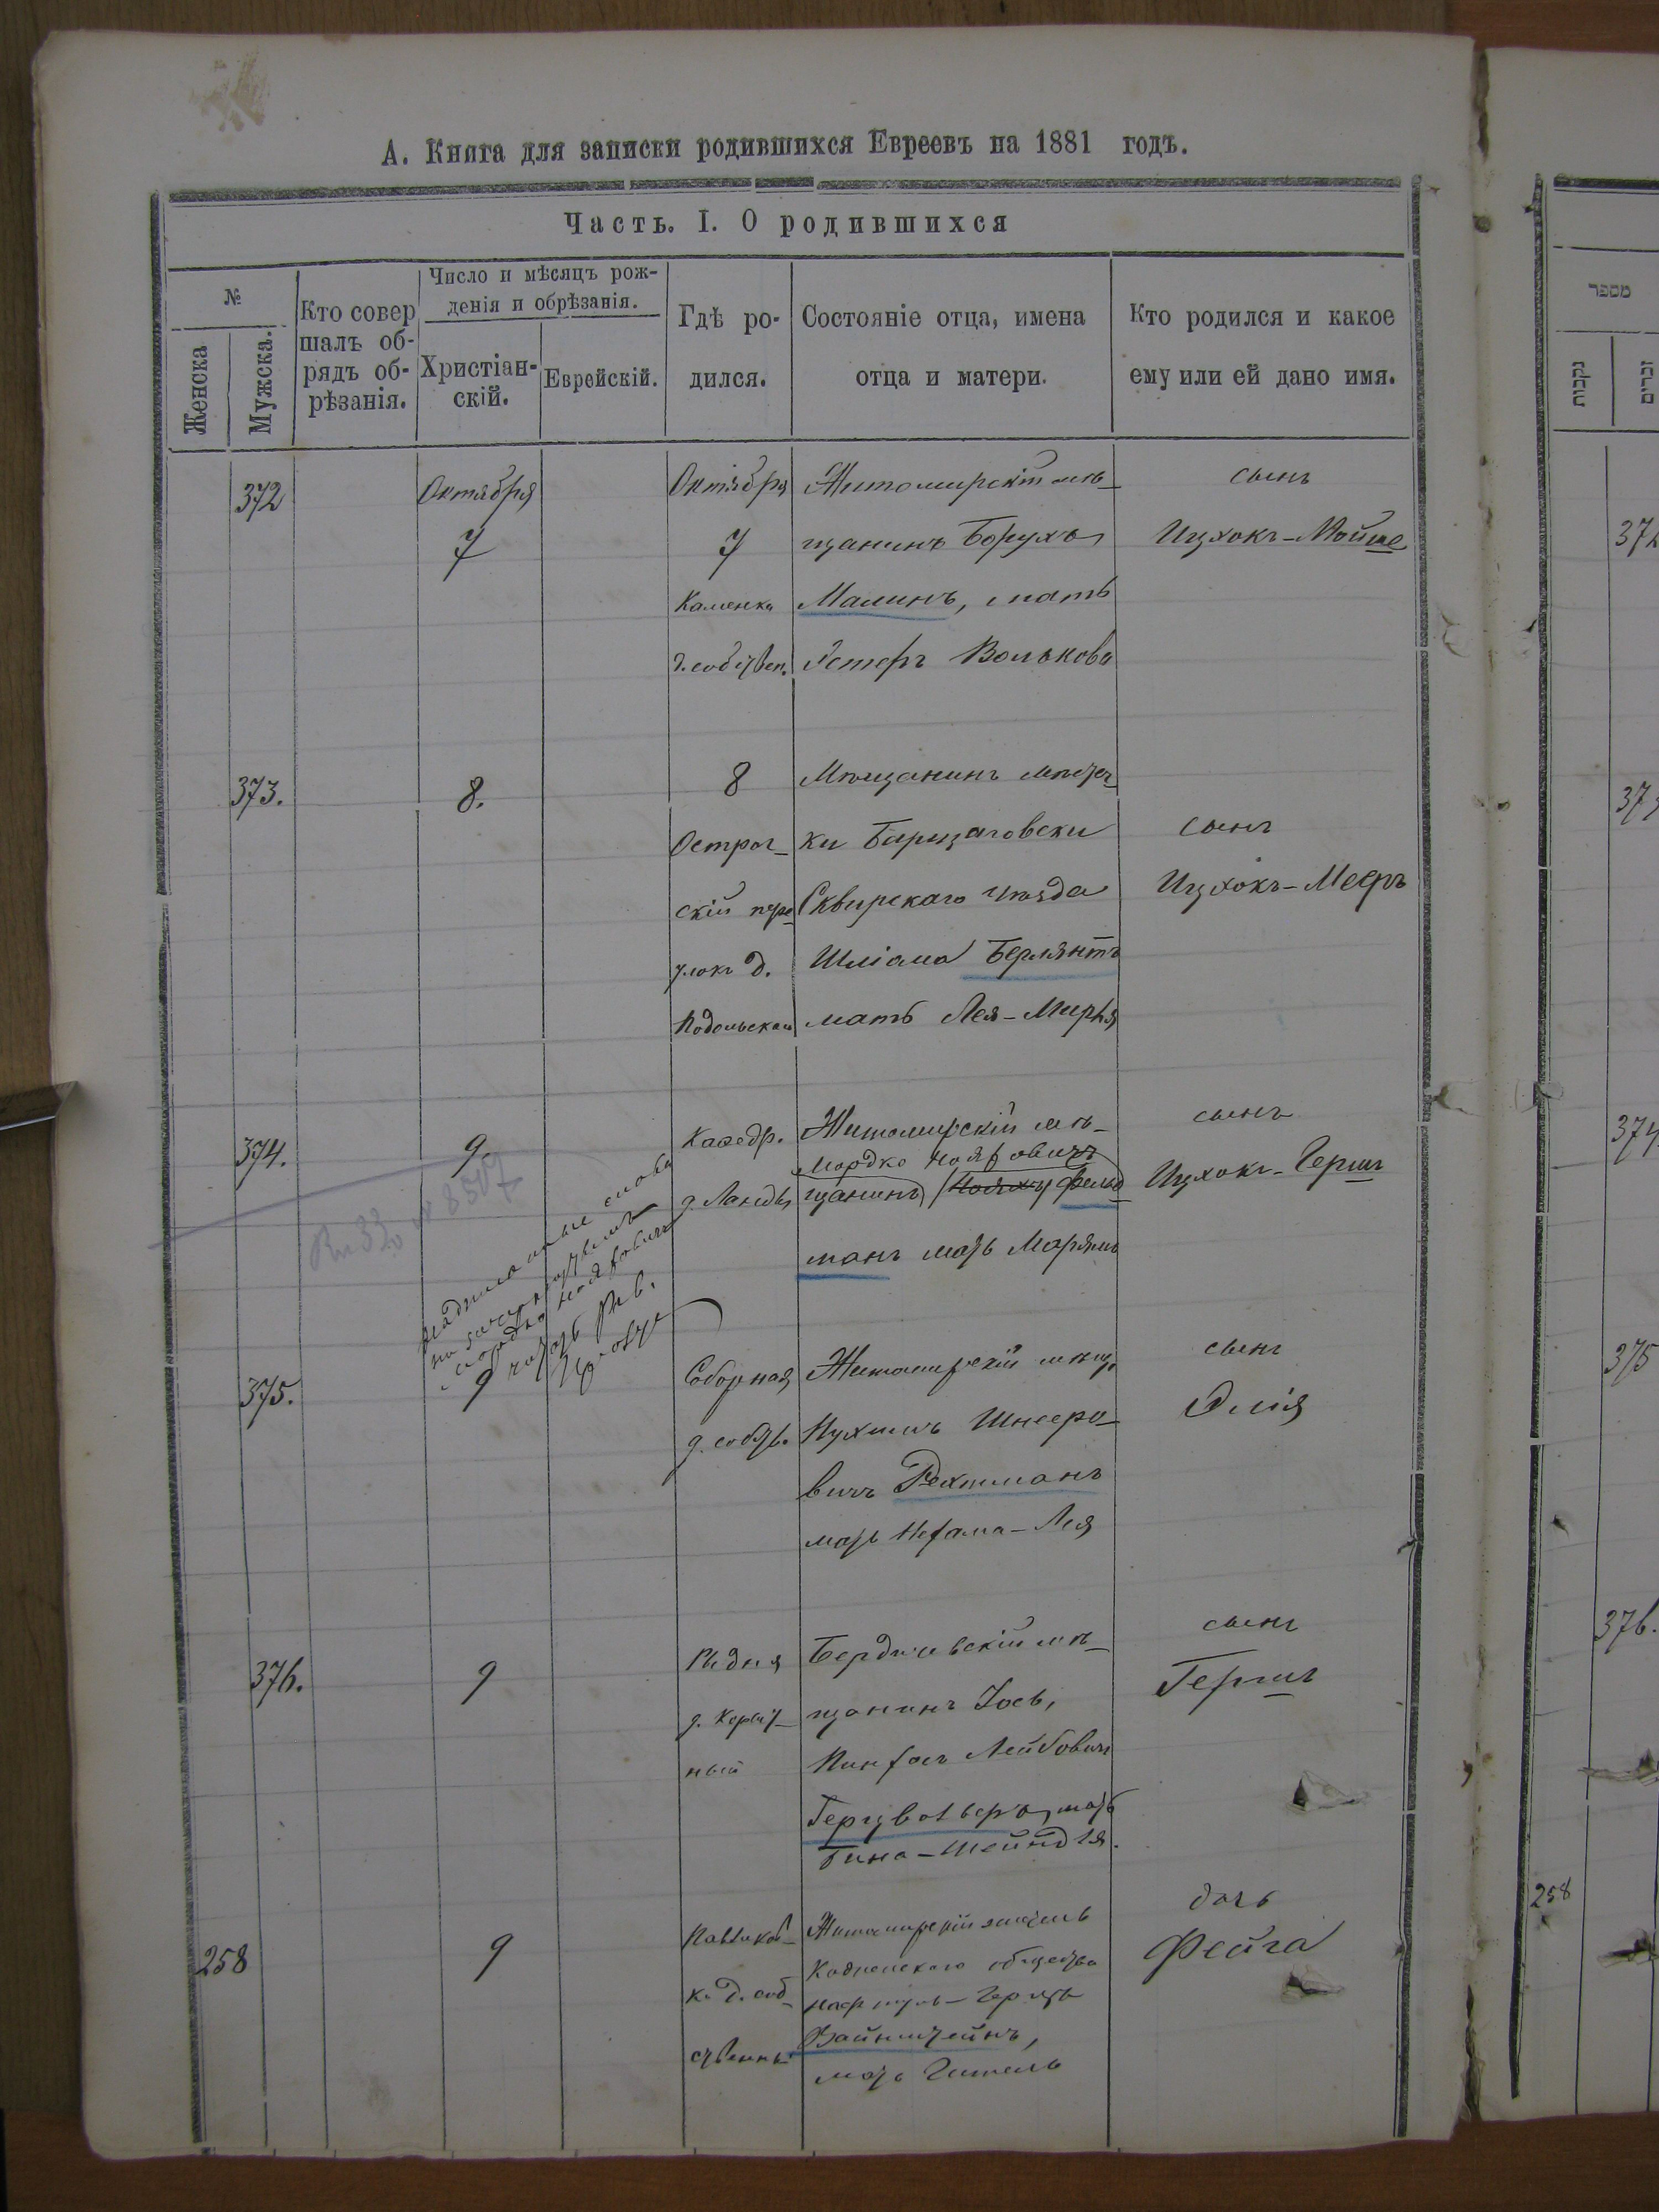 А. Книга для записки родившихся Евреевъ на 1881 годъ.
Часть. I. О родившихся
№
Женска
Мужска.
Кто совер
шалъ об-
рядъ об-
рѣзанія.
Число и мѣсяцъ рож-
денія и обрѣзанія.
Христіан-
скій.
Еврейскій.
Гдѣ ро-
дился.
Состояніе отца, имена
отца и матери.
Кто родился и какое
ему или ей дано имя.
372
Октября
7
Октября
7
Каменка
д. собствен.
Житомирскій мѣ-
щанинъ Борухъ
Малинъ, мать
Естеръ Волькова
сынъ
Ицхокъ-Мойше
373.
8.
8
Острог-
скій пере
улокъ д.
Подольскаи
Мѣщанинъ мѣстеч-
ки
Сквирскаго уѣзда
Шліома Берлянтъ
мать Лея-Мирля
сынъ
Ицхокъ-Мееръ
374.
9.
Кафедр.
д. Ланды
Житомирскій мѣ-
Мордко Нояховичъ
щанинъ Фельд
манъ мать Марьямъ
сынъ
Ицхокъ-Гершъ
слова
Мордко Нояховичъ
375.
9
Соборная
д. собств.
Житомирскій мѣщ.
Нухимъ Шнееро-
вичъ Рехтманъ
мать Нехама-Лея
сынъ
Элія
376.
9
Рыдня
ный
Бердичевскій мѣ-
щанинъ Іось,
Пинхосъ Лейбовичъ
мать
Бина-Шейндля.
сынъ
Гершъ
258
9
к. д. соб-
ственный
Житомирскій житель
Кодненскаго общества
Нафтуль-Герцъ
Вайнштейнъ,
мать Гитель
дочь
Фейга
מספר
נקבות
זכרים
37
37
374
375
376.
258